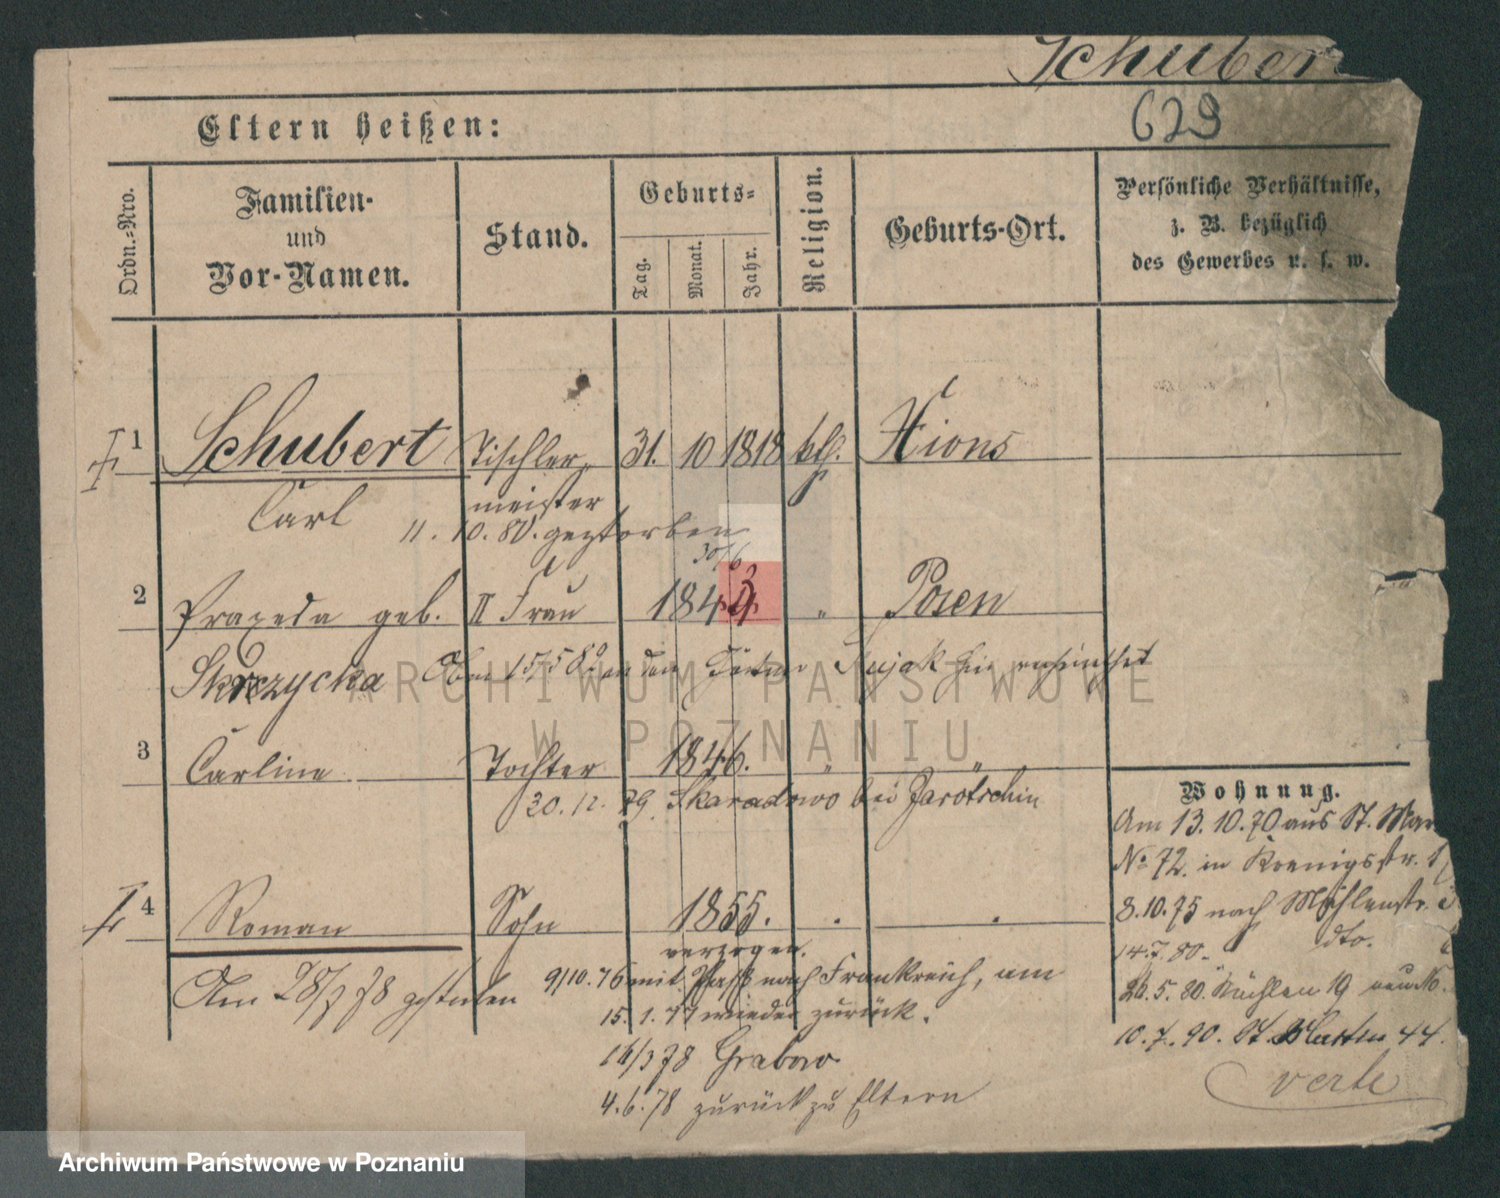 Schuber
629
Eltern heißen:
Ordn.-Nro.
Familien-
und
Vor-Namen.
Stand.
Geburts-
Tag.
Monat.
Jahr.
Religion.
Geburts-Ort.
Persönliche Verhältnisse,
z. B. bezüglich
des Gewerbes u. s. w.
1 Schubert Tischler- 31. 10 1818 kth. Xions
Carl meister
11. 10. 80. gestorben
30/6
2 Praxeda geb. II Frau 1843 " Posen
Skrzycka 15/5 82 an den Kujak hie
3 Carline Tochter 1846. " "
30. 12. 79. Skaradowo bei Jarotschin
4 Roman Sohn 1855. . .
verzogen.
Am 28/7 78 gestorben
9/10. 76 mit Pass nach Frankreich, am
15. 1. 77 wieder zurück.
16/3 78 Grabow
4. 6. 78 zurück zu Eltern
Wohnung.
Am 13. 10. 70 aus St. Mar
No 72. in Koenigsstr. 1
8. 10. 75 nach Mühlenstr.
14. 7. 80. dto.
26. 5. 80. Mühlen 19
10. 7. 90. St. Martin 44.
verte
ARCHIWUM PAŃSTWOWE
W POZNANIU
Archiwum Państwowe w Poznaniu